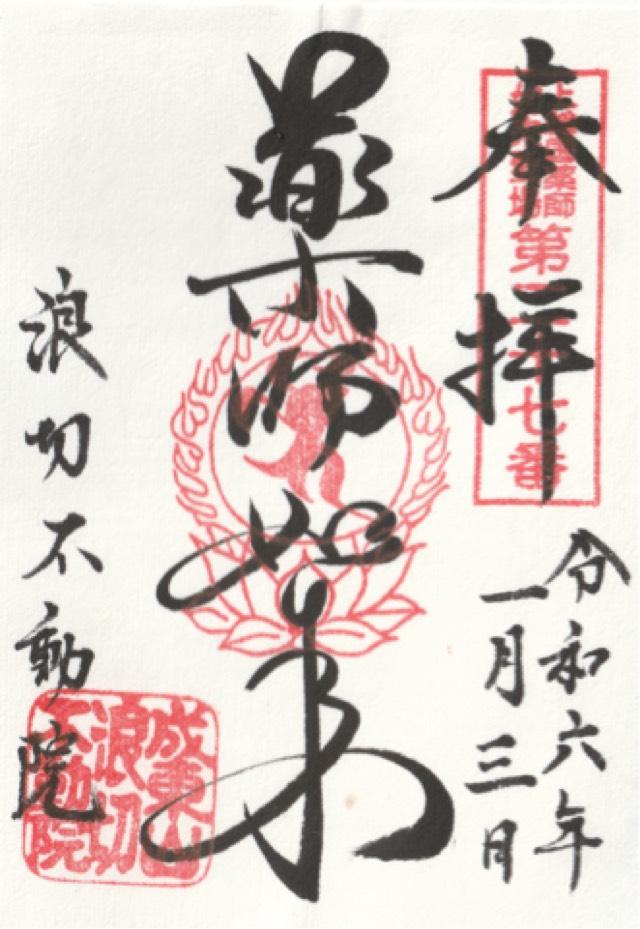 奉拝
令和六年
一月三日
薬師如来
浪切不動院
薬師
第
七番
成東山
浪切
不動院